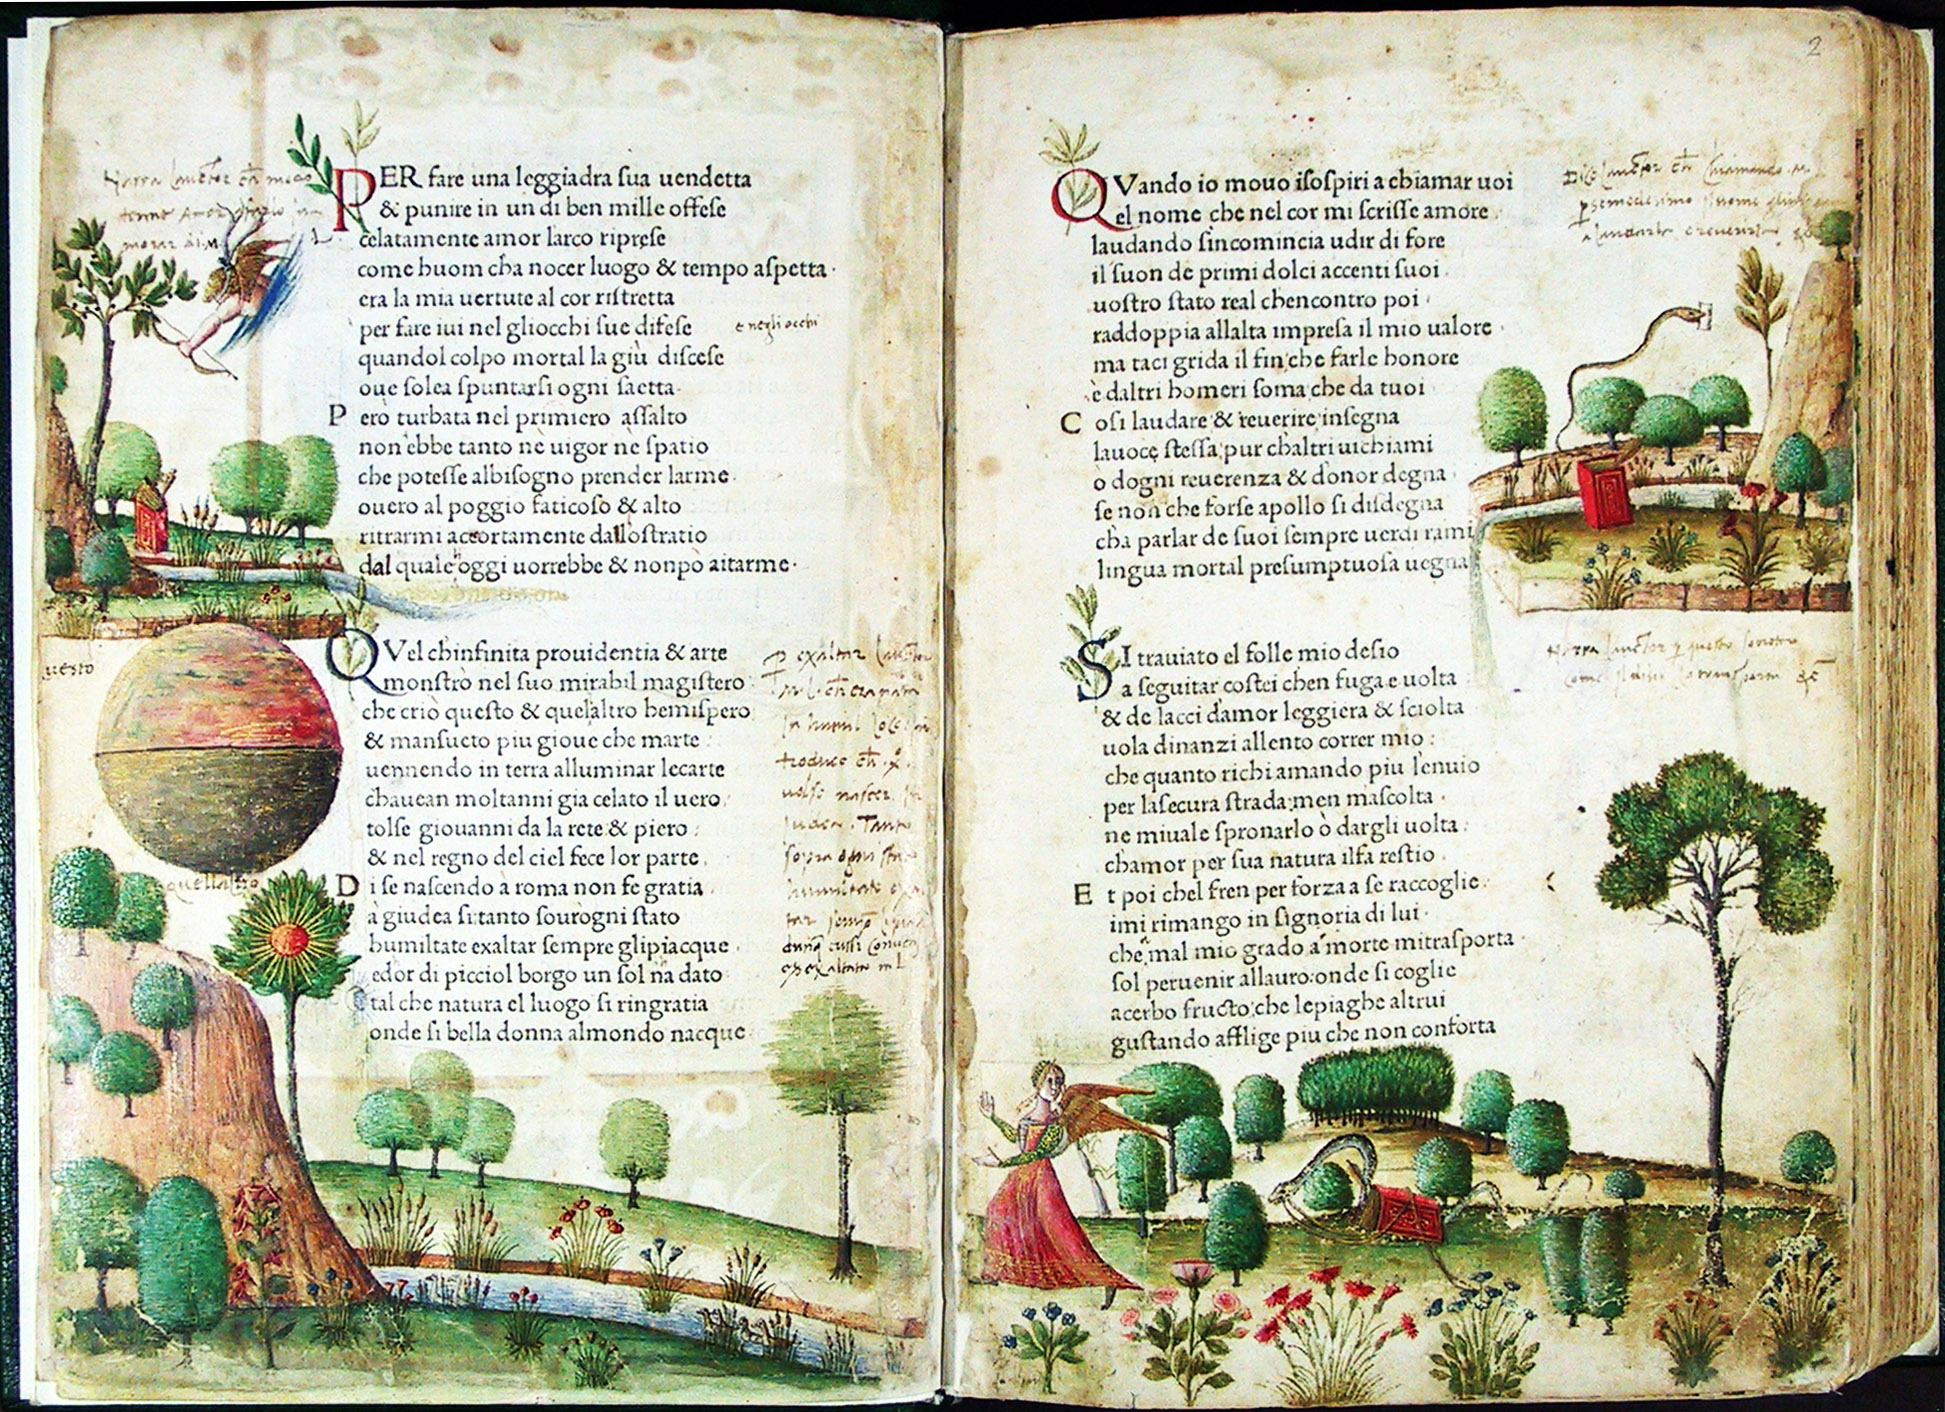 PER fare una leggiadra sua uendetta
& punire in un di ben mille offese
celatamente amor larco riprese
come huom cha nocer luogo & tempo aspetta·
era la mia uertute al cor ristretta
per fare iui nel gliocchi sue difese
e negli occhi
quandol colpo mortal la giù discese
oue solea spuntarsi ogni saetta·
Pero turbata nel primiero assalto
non ebbe tanto nè uigor ne spatio
che potesse albisogno prender larme·
ouero al poggio faticoso & alto
ritrarmi accortamente dallo stratio
dal quale oggi uorrebbe & nonpò aitarme·
QVel chinfinita prouidentia & arte
monstrò nel suo mirabil magistero
che criò questo & quelaltro hemispero
& mansueto piu gioue che marte:
uennendo in terra alluminar lecarte
chauean moltanni gia celato il uero
tolse giouanni da la rete & piero:
& nel regno del ciel fece lor parte.
Di se nascendo à roma non fe gratia
à giudea si: tanto sourogni stato
humiltate exaltar sempre glipiacque·
edor di picciol borgo un sol na dato
tal che natura el luogo si ringratia
onde si bella donna almondo nacque·
uesto
quellaltro
2
QVando io mouo isospiri a chiamar uoi
el nome che nel cor mi scrisse amore
laudando sincomincia udir di fore
il suon de primi dolci accenti suoi
uostro stato real chencontro poi
raddoppia allalta impresa il mio ualore·
ma taci grida il fin, che farle honore
è daltri homeri soma che da tuoi
Cosi laudare & reuerire insegna
lauoce stessa, pur chaltri uichiami
ò dogni reuerenza & donor degna
se non che forse apollo si disdegna
cha parlar de suoi sempre uerdi rami
lingua mortal presumptuosa uegna
SI trauiato el folle mio desio
a seguitar costei chen fuga e uolta
& de lacci damor leggiera & sciolta
uola dinanzi allento correr mio:
che quanto richiamando piu lenuio
per lasecura strada men mascolta·
ne miuale spronarlo ò dargli uolta:
chamor per sua natura ilfa restio
Et poi chel fren per forza a se raccoglie·
imi rimango in signoria di lui·
che mal mio grado a morte mitrasporta
sol peruenir allauro: onde si coglie
acerbo fructo: che lepiaghe altrui
gustando afflige piu che non conforta